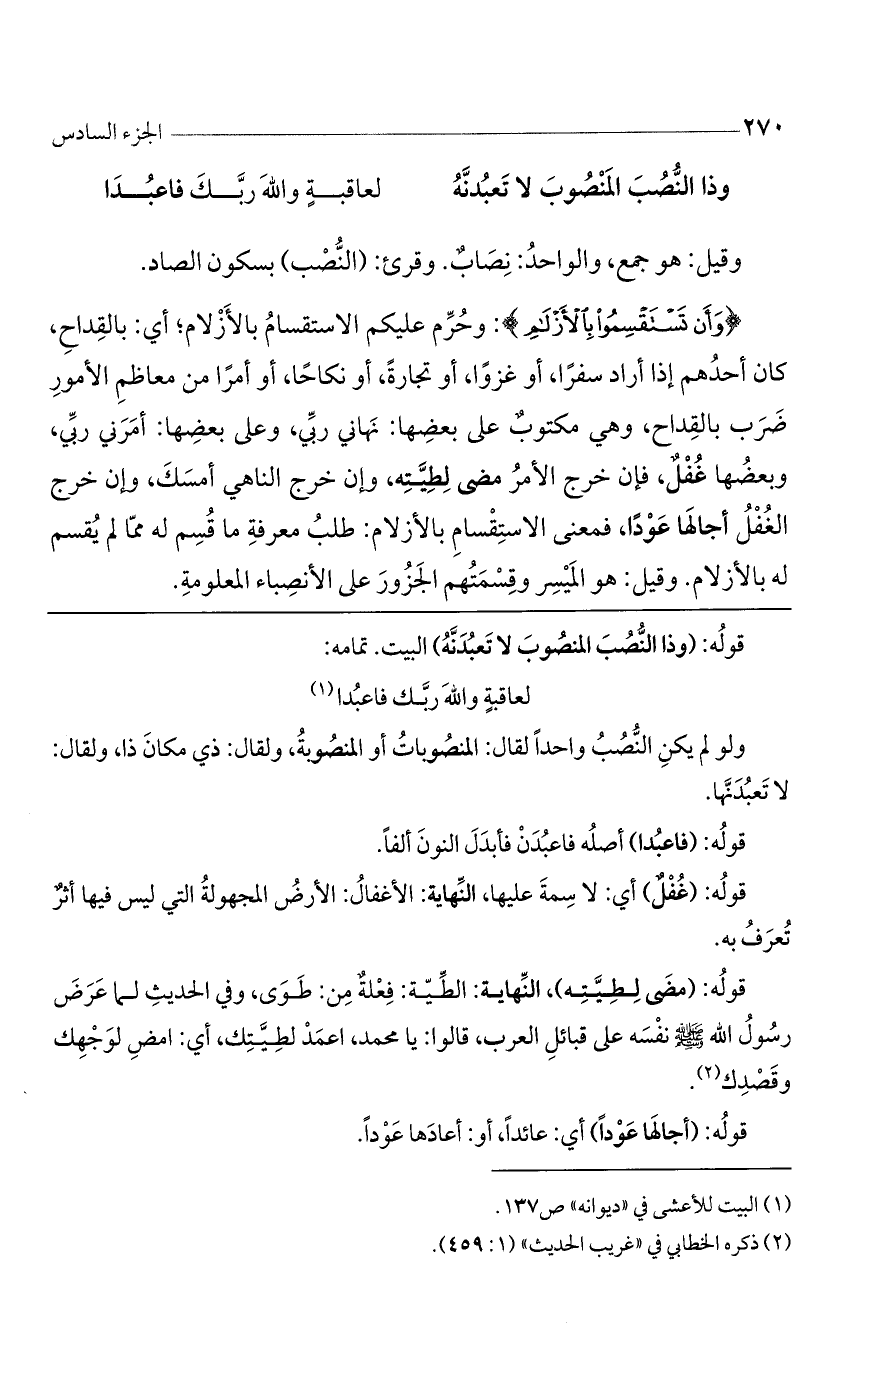 ٢٧٠ الجزء السادس
وذا النُّصُبَ المَنْصُوبَ لا تَعبُدنَّهُ لعاقبـــةٍ واللهَ ربَّـــكَ فاعبُـــدَا
وقيل: هو جمع، والواحدُ: نِصَابٌ. وقرئ: (النُّصْب) بسكون الصاد.
﴿وَأَن تَسْتَقْسِمُوا بِٱلْأَزْلَٰمِ﴾: وحُرِّم عليكم الاستقسامُ بالأَزْلام؛ أي: بالقِداحِ،
كان أحدُهم إذا أراد سفرًا، أو غزوًا، أو تجارةً، أو نكاحًا، أو أمرًا من معاظمِ الأمورِ
ضَرَب بالقِداح، وهي مكتوبٌ على بعضِها: نَهاني ربِّي، وعلى بعضِها: أمَرَني ربِّي،
وبعضُها غُفْلٌ، فإن خرج الأمرُ مضى لِطِيَّتِه، وإن خرج الناهي أمسَكَ، وإن خرج
الغُفْلُ أجالهَا عَوْدًا، فمعنى الاستِقْسامِ بالأزلام: طلبُ معرفةِ ما قُسِم له ممّا لم يُقسم
له بالأزلام. وقيل: هو المَيْسِر وقِسْمَتُهم الجَزُورَ على الأنصِباء المعلومةِ.
قولُه: (وذا النُّصُبَ المنصُوبَ لا تَعبُدَنَّهُ) البيت. تمامه:
لعاقبةٍ واللهَ ربَّـك فاعبُدا(١)
ولو لم يكنِ النُّصُبُ واحداً لقال: المنصُوباتُ أو المنصُوبةُ، ولقال: ذي مكانَ ذا، ولقال:
لا تَعبُدَنَّها.
قولُه: (فاعبُدا) أصلُه فاعبُدَنْ فأبدَلَ النونَ ألفاً.
قولُه: (غُفْلٌ) أي: لا سِمةَ عليها، النِّهاية: الأغفالُ: الأرضُ المجهولةُ التي ليس فيها أثرٌ
تُعرَفُ به.
قولُه: (مضَى لِـطِـيَّـتِـه)، النِّهايـة: الطِّيّـة: فِعْلةٌ مِن: طَـوَى، وفي الحديثِ لـما عَرَضَ
رسُولُ الله ﷺ نفْسَه على قبائلِ العرب، قالوا: يا محمد، اعمَدْ لطِـيَّـتِك، أي: امضِ لوَجْهِك
وقَصْدِك(٢).
قولُه: (أجالهَا عَوْداً) أي: عائداً، أو: أعادَها عَوْداً.
(١) البيت للأعشى في «ديوانه» ص١٣٧.
(٢) ذكره الخطابي في «غريب الحديث» (١: ٤٥٩).